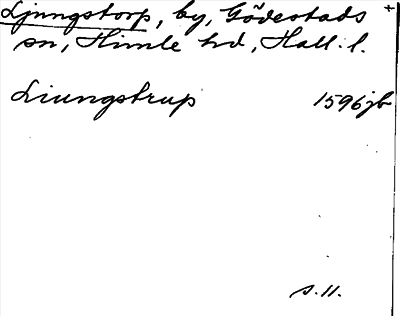 Ljungstorp, by, Gödestads +
sn, Himle hd, Hall. l.
Liungstrup 1596 jb
s. 11.